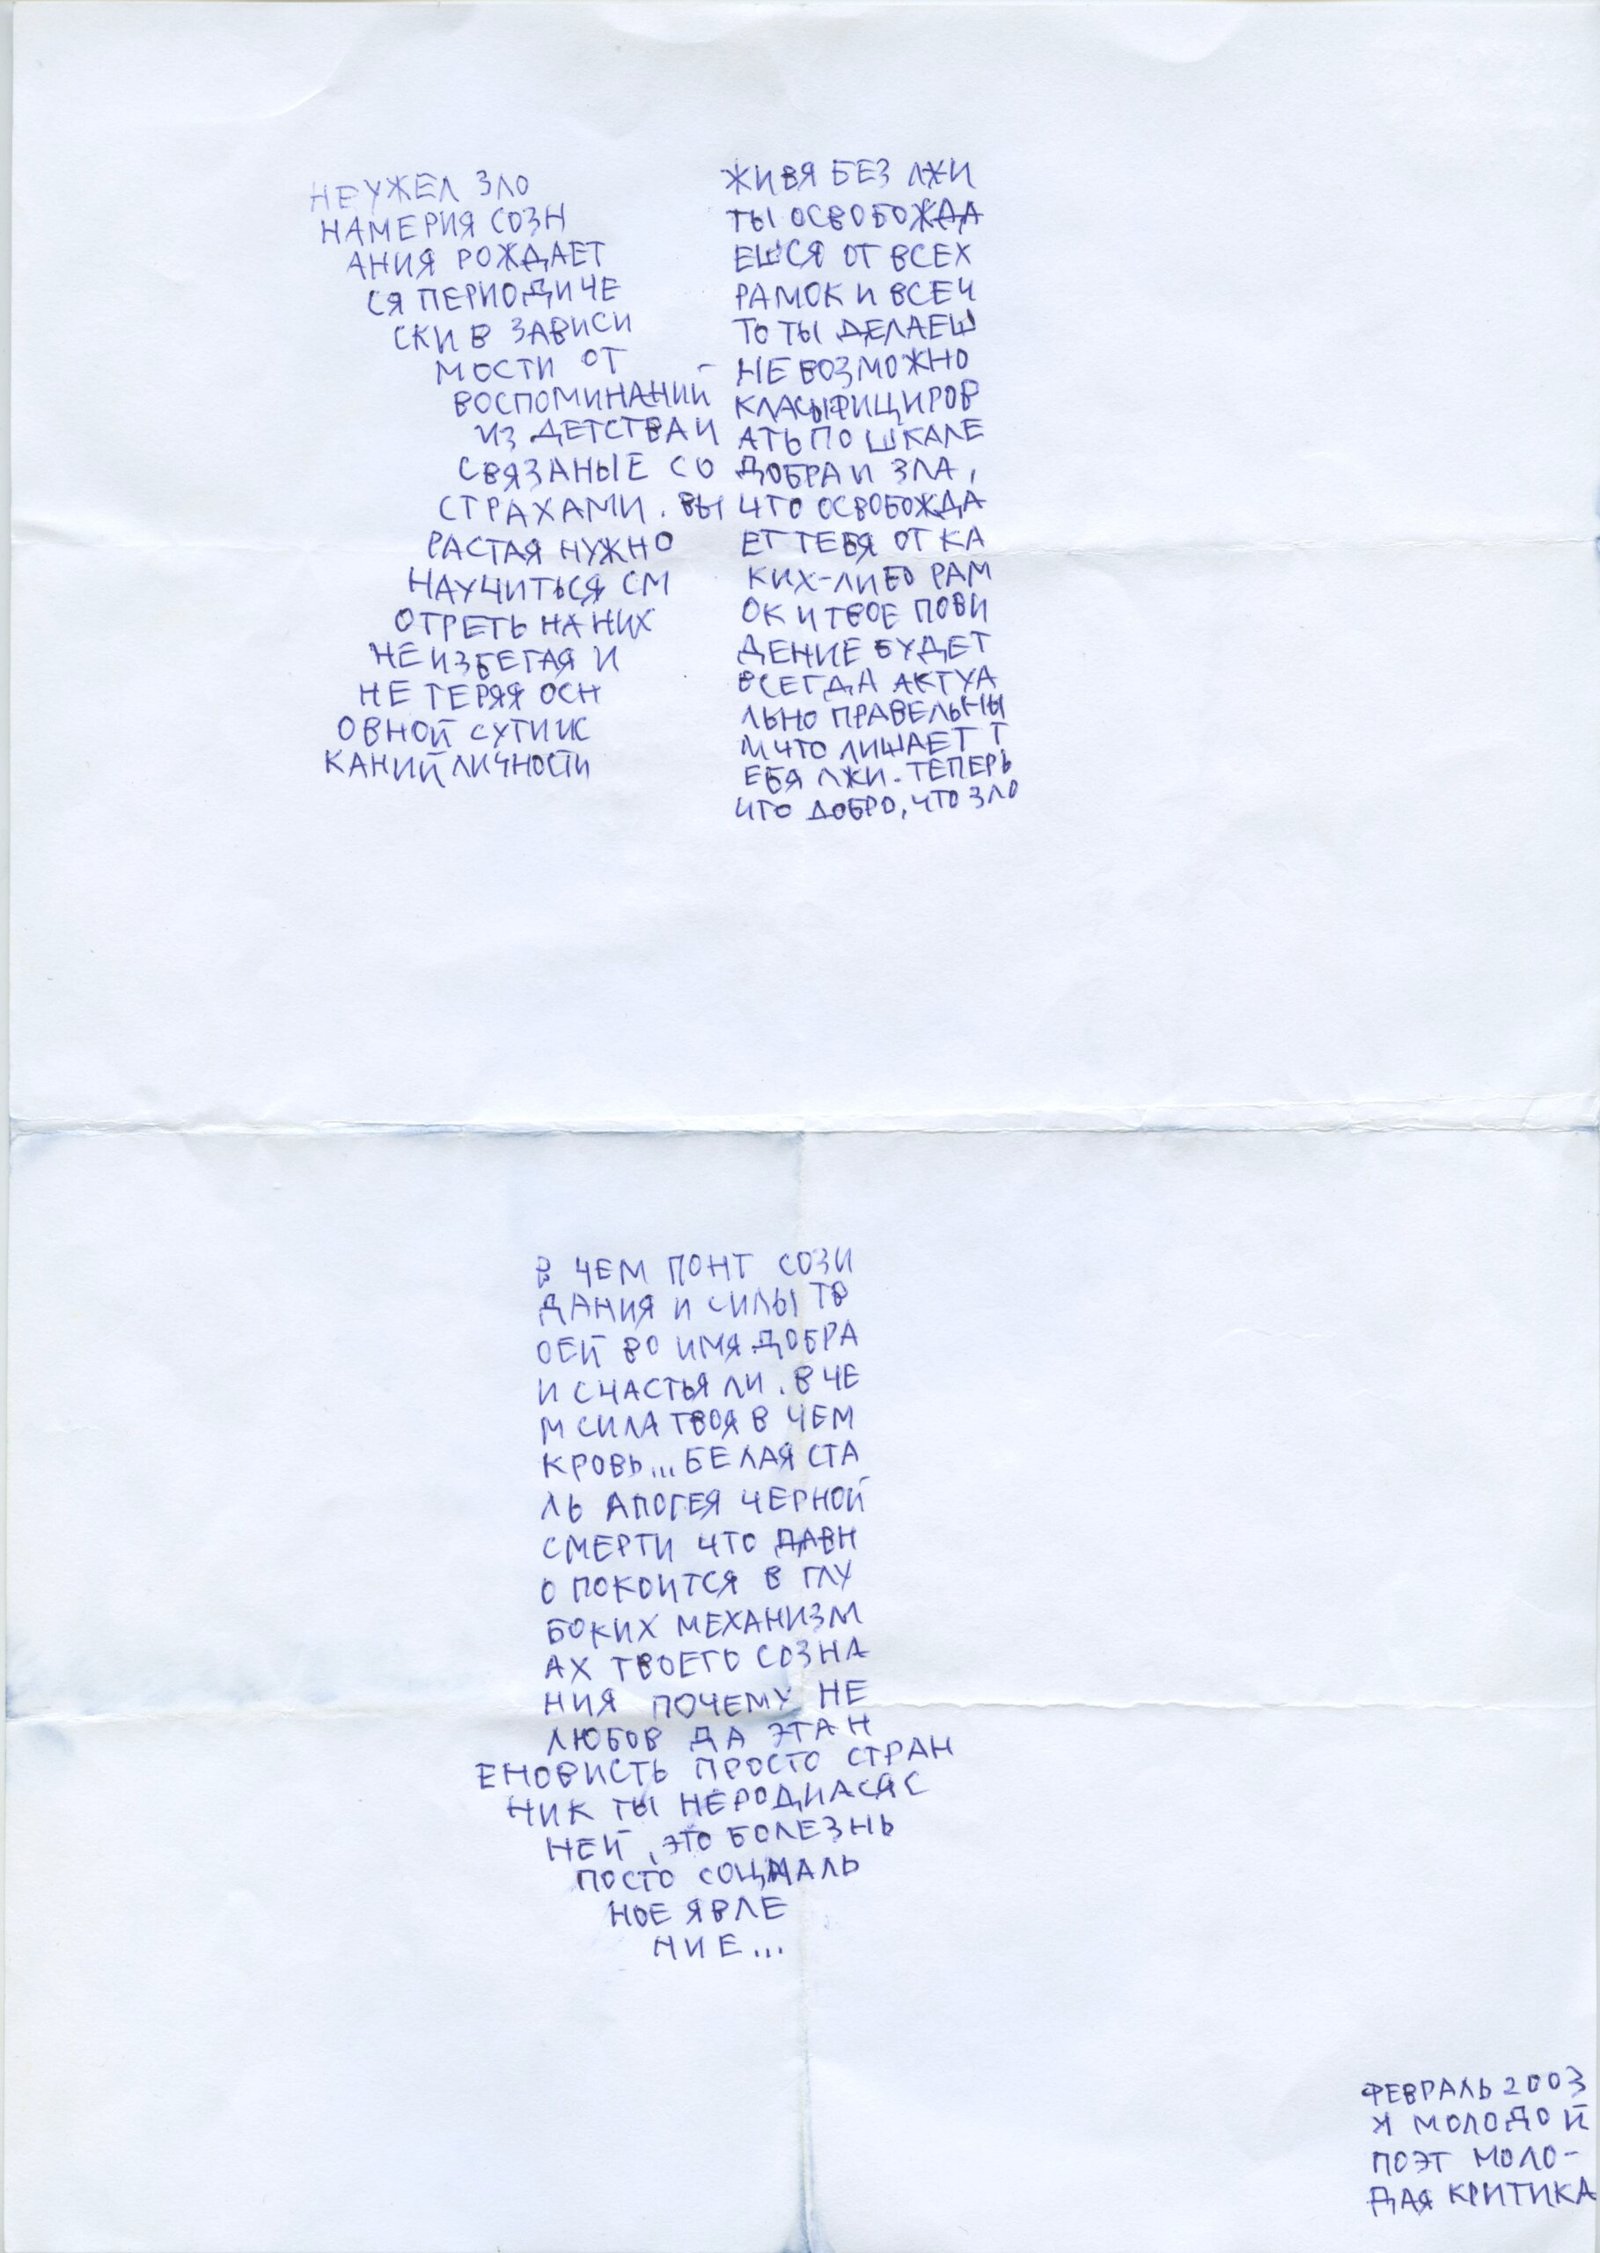 НЕУЖЕЛ ЗЛО
НАМЕРИЯ СОЗН
АНИЯ РОЖДАЕТ
СЯ ПЕРИОДИЧЕ
СКИ В ЗАВИСИ
МОСТИ ОТ
ВОСПОМИНАНИЙ
ИЗ ДЕТСТВА И
СВЯЗАНЫЕ СО
СТРАХАМИ. ВЫ
РАСТАЯ НУЖНО
НАУЧИТЬСЯ СМ
ОТРЕТЬ НА НИХ
НЕ ИЗБЕГАЯ И
НЕ ТЕРЯЯ ОСН
ОВНОЙ СУТИ ИС
КАНИЙ ЛИЧНОСТИ
ЖИВЯ БЕЗ ЛЖИ
ТЫ ОСВОБОЖДА
ЕШСЯ ОТ ВСЕХ
РАМОК И ВСЕ Ч
ТО ТЫ ДЕЛАЕШ
НЕ ВОЗМОЖНО
КЛАСЫФИЦИРОВ
АТЬ ПО ШКАЛЕ
ДОБРА И ЗЛА,
ЧТО ОСВОБОЖДА
ЕТ ТЕБЯ ОТ КА
КИХ-ЛИБО РАМ
ОК И ТВОЕ ПОВИ
ДЕНИЕ БУДЕТ
ВСЕГДА АКТУА
ЛЬНО ПРАВЕЛЬНЫ
М ЧТО ЛИШАЕТ Т
ЕБЯ ЛЖИ. ТЕПЕРЬ
ЧТО ДОБРО, ЧТО ЗЛО
В ЧЕМ ПОНТ СОЗИ
ДАНИЯ И СИЛЫ ТВ
ОЕЙ ВО ИМЯ ДОБРА
И СЧАСТЬЯ ЛИ. В ЧЕ
М СИЛА ТВОЯ В ЧЕМ
КРОВЬ... БЕЛАЯ СТА
ЛЬ АПОГЕЯ ЧЕРНОЙ
СМЕРТИ ЧТО ДАВН
О ПОКОИТСЯ В ГЛУ
БОКИХ МЕХАНИЗМ
АХ ТВОЕГО СОЗНА
НИЯ ПОЧЕМУ НЕ
ЛЮБОВ ДА ЭТА Н
ЕНОВИСТЬ ПРОСТО СТРАН
НИК ТЫ НЕРОДИЛСЯ С
НЕЙ, ЭТО БОЛЕЗНЬ
ПОСТО СОЦИАЛЬ
НОЕ ЯВЛЕ
НИЕ...
ФЕВРАЛЬ 2003
Я МОЛОДОЙ
ПОЭТ МОЛО-
ДАЯ КРИТИКА